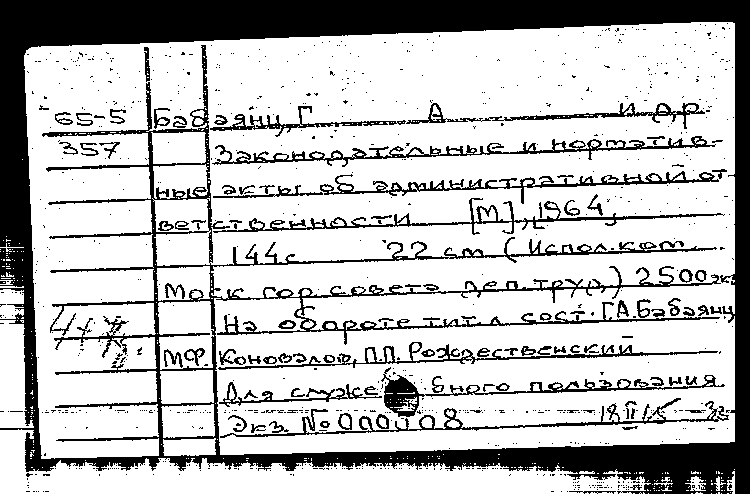 65-5 Бабаянц, Г А и др.
357 Законодательные и норматив-
ные акты об административной от-
ветственности [М], 1964,
144 с 22 см (Испол. ком.
Моск. гор. совета деп. труд.) 2500 экз
На обороте тит. л сост. Г.А. Бабаянц,
М.Ф. Коновалов, П.П. Рождественский
Для служебного пользования
Экз. № 000008